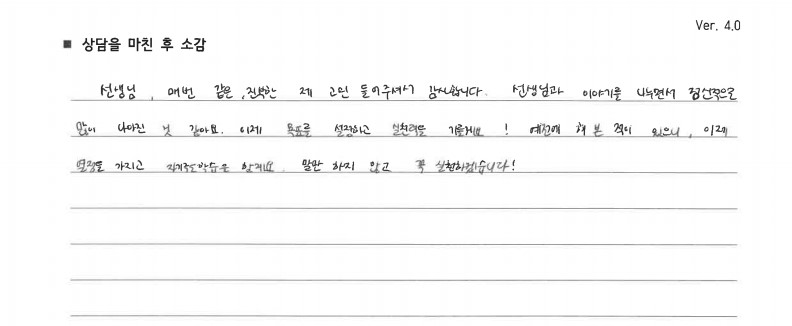 Ver. 4.0
■ 상담을 마친 후 소감
선생님, 매번 같은, 진부한 제 고민 들어주셔서 감사합니다. 선생님과 이야기를 나누면서 정신적으로
많이 나아진 것 같아요. 이제 목표를 설정하고 실천력을 기를게요! 예전에 해 본 적이 있으니, 이제
열정을 가지고 자기주도학습을 할게요. 말만 하지 않고 꼭 실현하겠습니다!